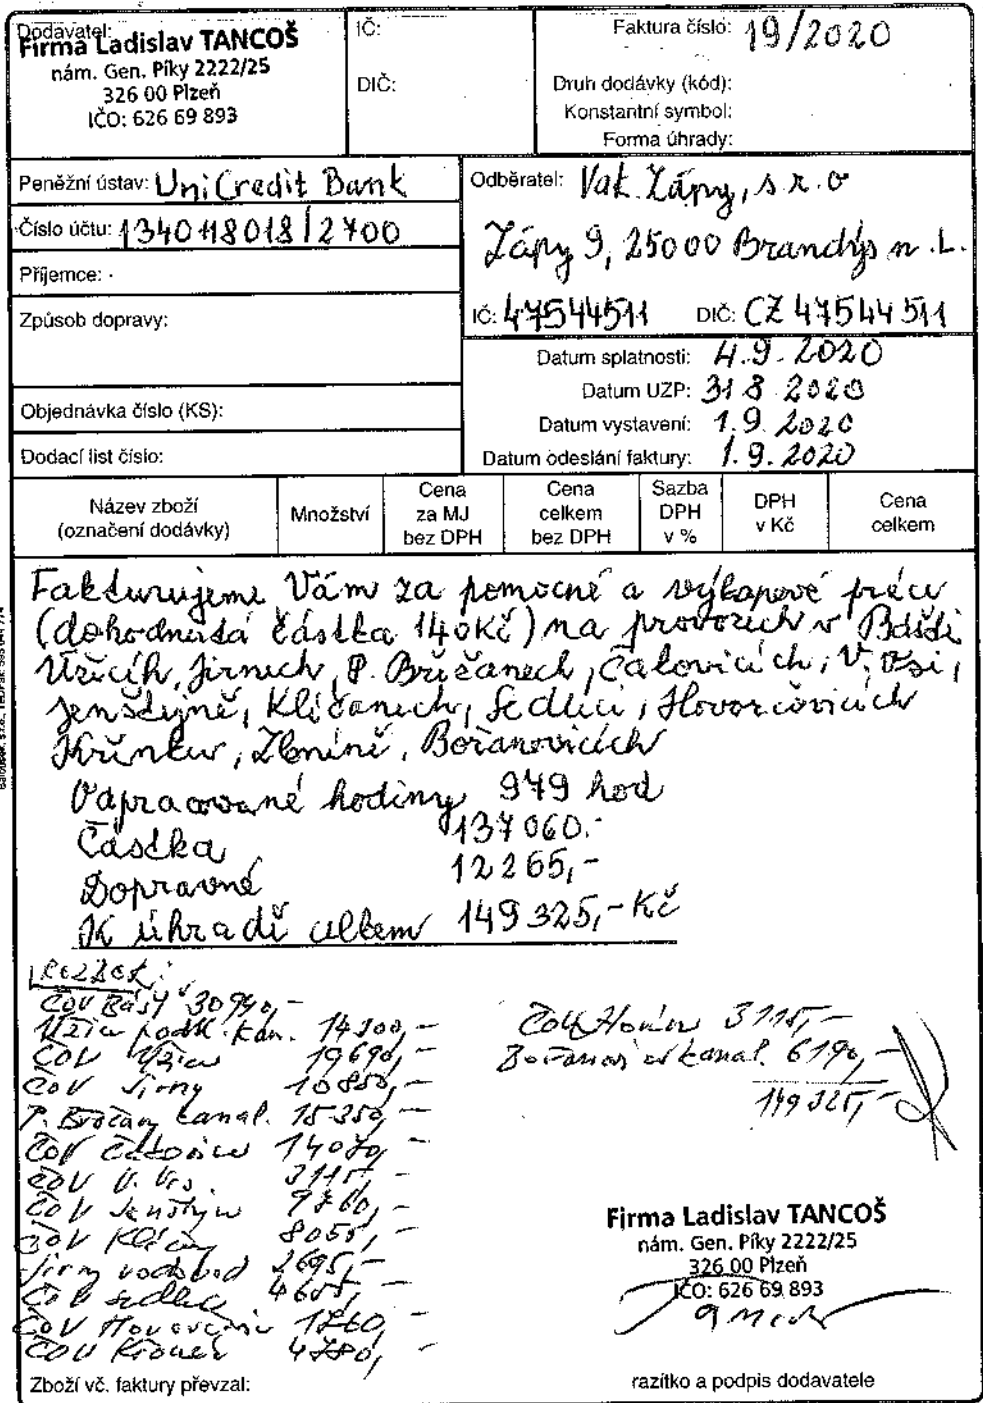 Dodavatel:
Firma Ladislav TANCOŠ
nám. Gen. Píky 2222/25
326 00 Plzeň
IČO: 626 69 893
IČ:
DIČ:
Faktura číslo: 19/2020
Druh dodávky (kód):
Konstantní symbol:
Forma úhrady:
Peněžní ústav: UniCredit Bank
Číslo účtu: 1340118018/2700
Příjemce:
Způsob dopravy:
Objednávka číslo (KS):
Dodací list číslo:
Odběratel: Vak Zápy, s.r.o
Zápy 9, 25000 Brandýs n.L.
IČ: 47544511 DIČ: CZ 47544511
Datum splatnosti: 4.9.2020
Datum UZP: 31 8 2020
Datum vystavení: 1.9.2020
Datum odeslání faktury: 1.9.2020
Název zboží
(označení dodávky)
Množství
Cena
za MJ
bez DPH
Cena
celkem
bez DPH
Sazba
DPH
v %
DPH
v Kč
Cena
celkem
Fakturujeme Vám za pomocné a výkopové práce
(dohodnutá částka 140Kč) na provozech v Bášti
Úžicích, Jirnech, P. Břežanech, Čakovicích, V. Vsi,
Jenštejně, Klíčanech, Sedleci, Hovorčovicích
Zloníně, Bořanovicích
Odpracované hodiny 979 hod
Částka 137060.-
Dopravné 12265,-
K úhradě celkem 149325,-Kč
ROZBOR:
ČOV Bášť 30940,-
Úžice podtl. kan. 14300,-
ČOV Úžice 19690,-
ČOV Jirny 10850,-
P. Břežany kanal. 15350,-
ČOV 14070,-
ČOV V. Ves 3115,-
ČOV Jenštejn 9760,-
ČOV Klíčany 8055,-
Jirny vodovod 2695,-
ČOV Sedlec 4655,-
ČOV Hovorčovic 1760,-
ČOV 4780,-
ČOV 3115,-
kanal. 6190,-
149325,-
Firma Ladislav TANCOŠ
nám. Gen. Píky 2222/25
326 00 Plzeň
IČO: 626 69 893
Zboží vč. faktury převzal:
razítko a podpis dodavatele